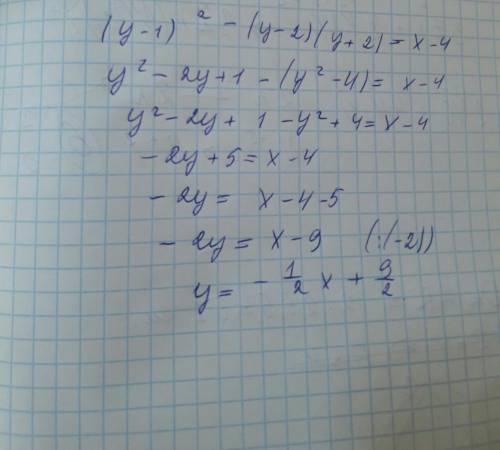 (y-1)² - (y-2)(y+2) = x-4
y² - 2y+1 - (y²-4) = x-4
y² - 2y + 1 - y² + 4 = x-4
- 2y + 5 = x - 4
- 2y = x - 4 - 5
- 2y = x - 9 (:(-2))
y = - 1/2 x + 9/2